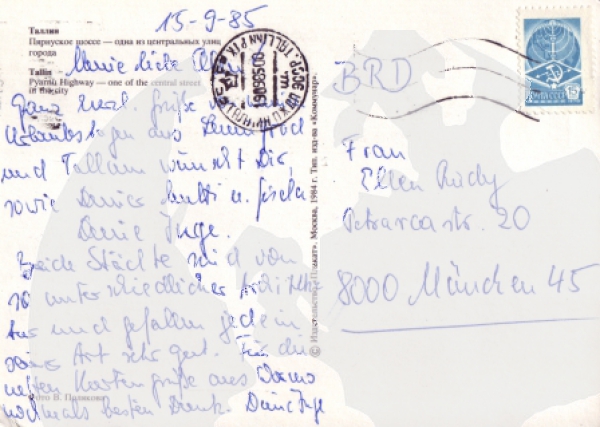 15-9-85
Таллин
Пярнуское шоссе — одна из центральных улиц
города
Meine liebe
Tallin
Pyarnu Highway — one of the central streets
in the city
Ganz herzl. Grüße
Urlaubstagen aus Leningrad
und Tallinn wünscht Dir,
sowie Deiner Mutti u. Gisela
Deine Inge.
Beide Städte sind von
so unterschiedlicher Architek-
tur und gefallen jede in
seiner Art sehr gut. Für die
netten Kartengrüße aus
nochmals besten Dank. Deine Inge
Фото В. Полякова
© Издательство «Плакат». Москва, 1984 г. Тип. изд-ва «Коммунар».
ПОЧТА СССР
BRD
Frau
Ellen Rudy
Petrarcastr. 20
8000 München 45